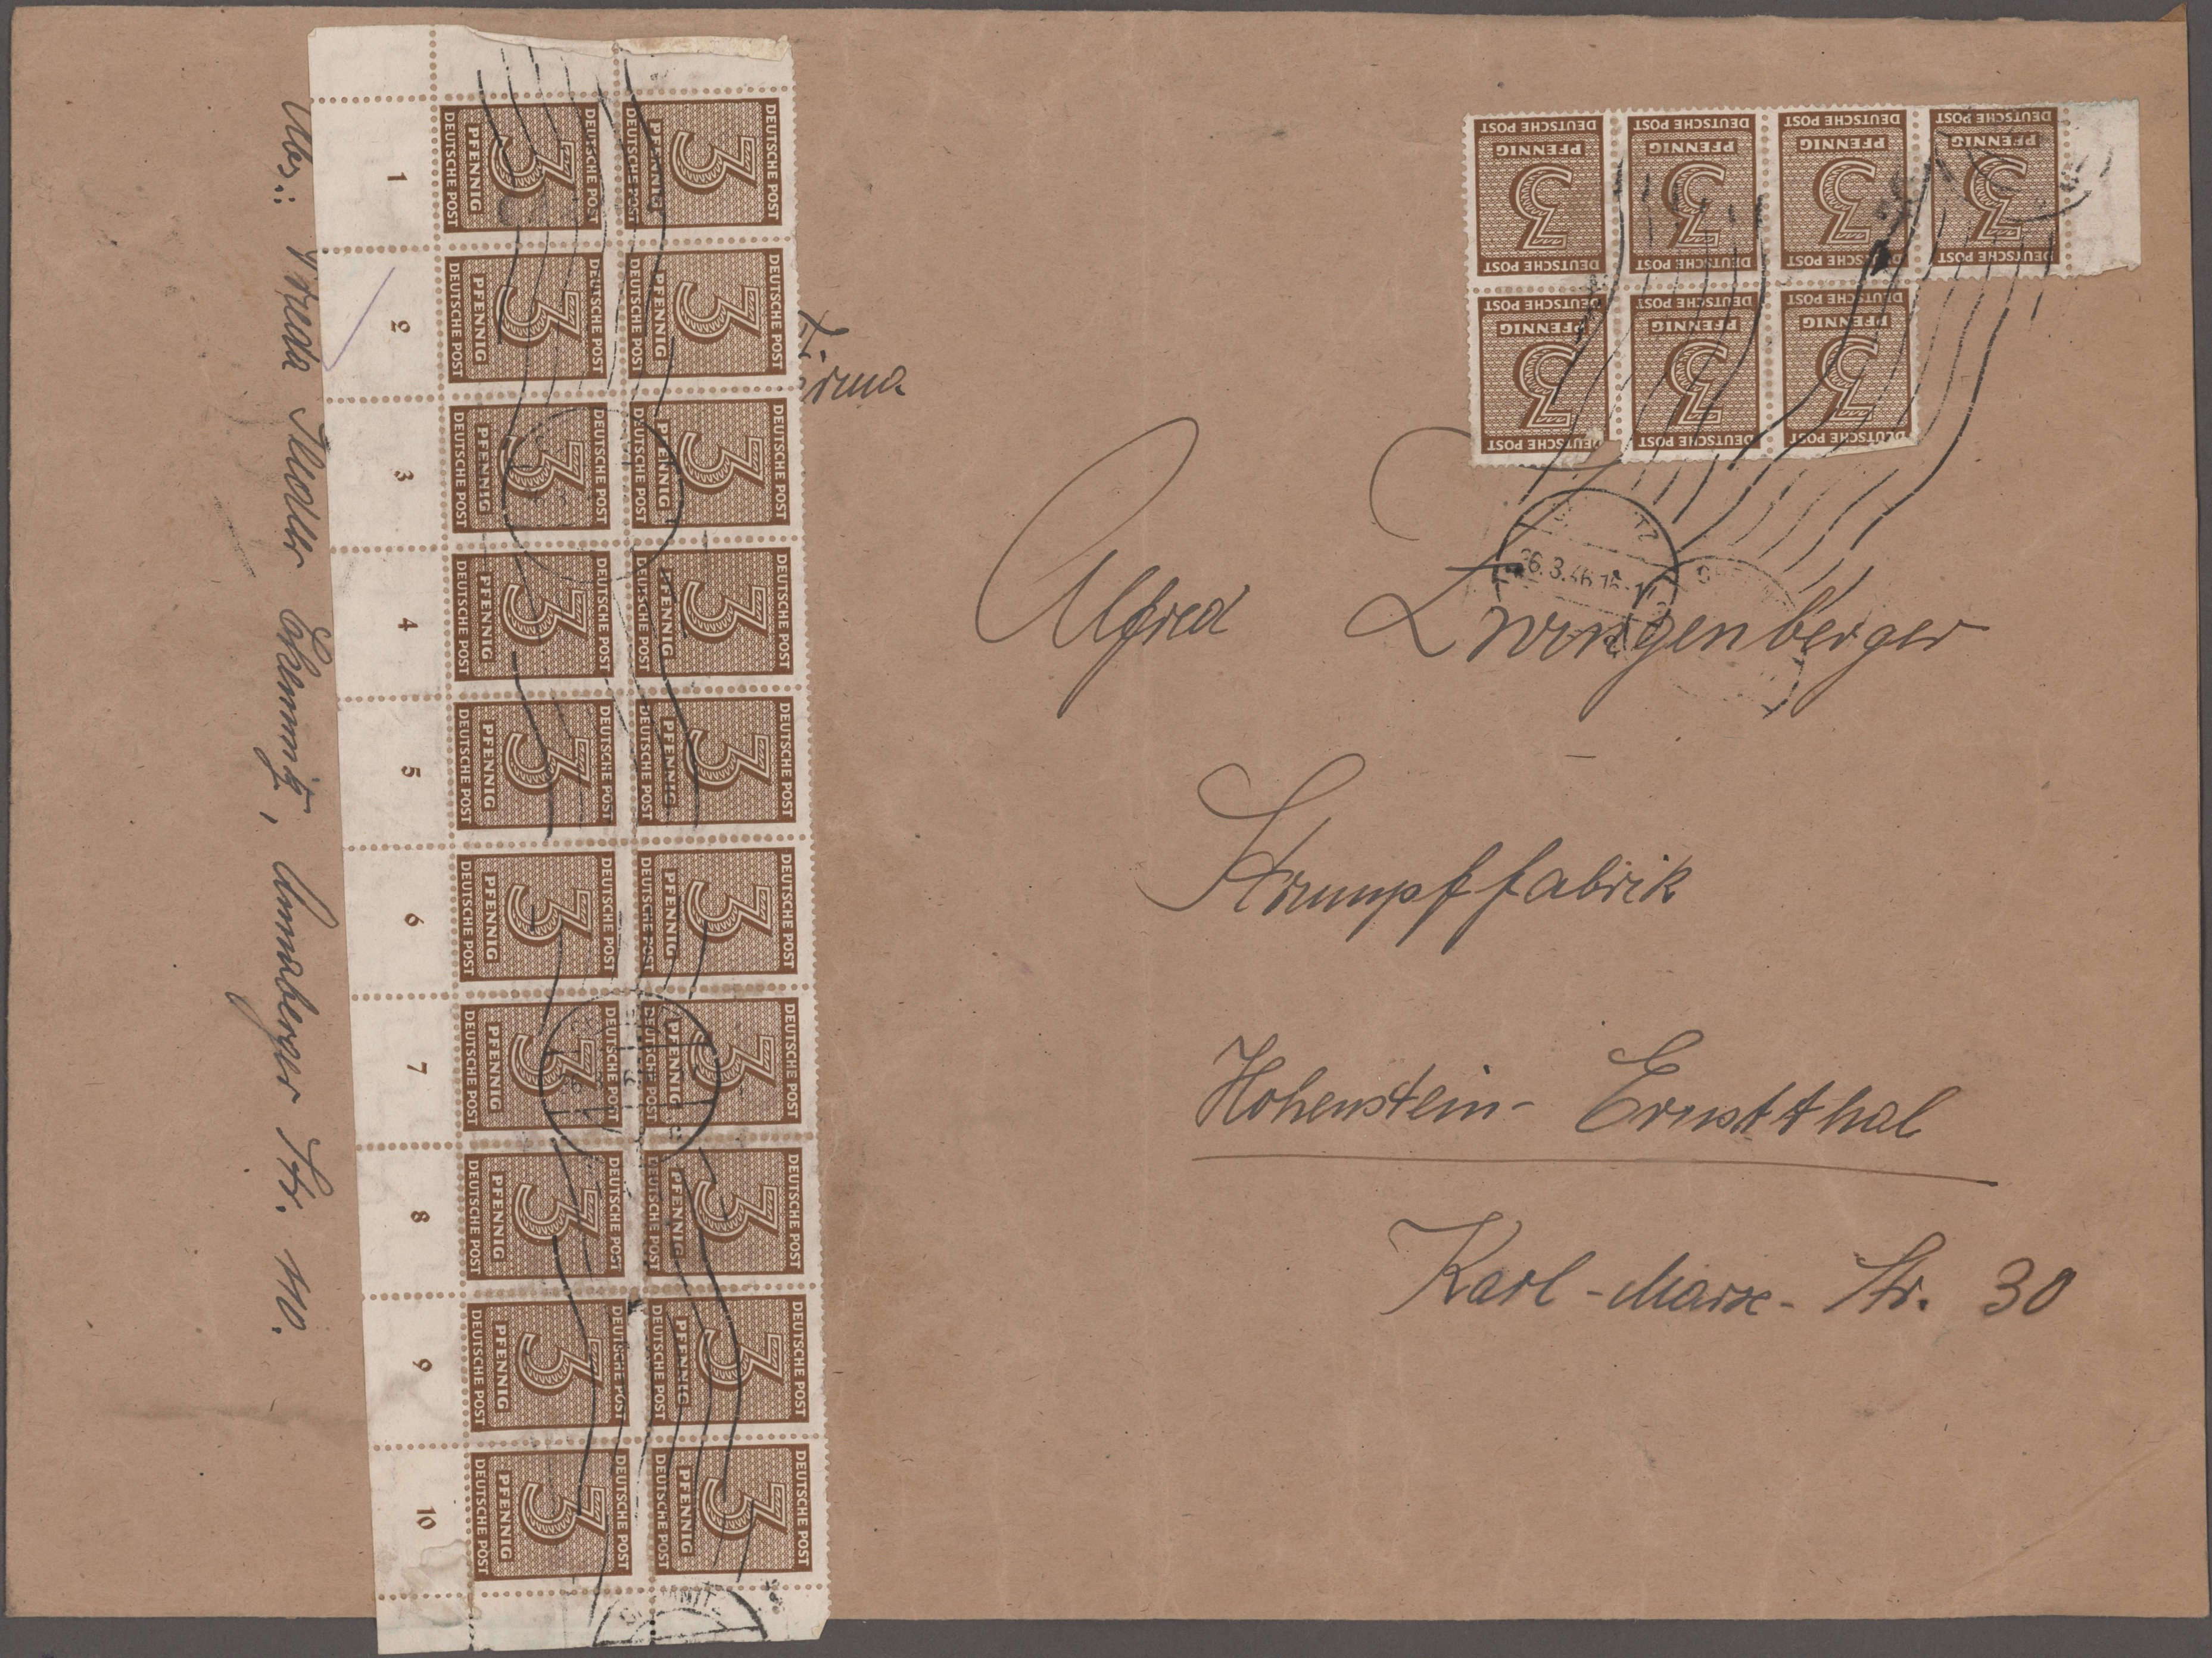 Firma
Alfred Zwingenberger
Strumpffabrik
Hohenstein-Ernstthal
Karl-Marx-Str. 30
Abs.: Chemnitz, Annaberger Str. 110.
1
2
3
4
5
6
7
8
9
10
DEUTSCHE POST
3
PFENNIG
DEUTSCHE POST
26.3.46.16-